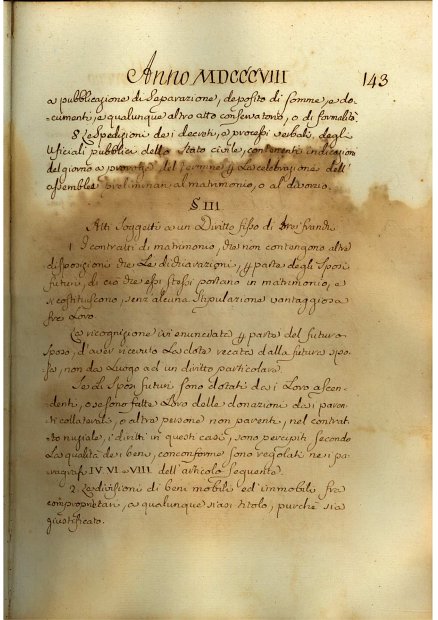 Anno MDCCCVIII 143
a pubblicazione di Separazione, deposito di somme, e do-
cumenti, e qualunque altro atto conservatorio, o di formalità
8. Le Spedizioni dei decreti, e processi verbali degli
Uficiali pubblici dello Stato civile, contenenti indicazioni
del giorno a proroga del termine per la celebrazione dell'
assemblee preliminari al matrimonio, o al divorzio.
§ III
Atti Soggetti a un Diritto fisso di tre franchi
1 I contratti di matrimonio, che non contengono altre
disposizioni che Le dichiarazioni, per parte degli Sposi
futuri, di ciò che essi stessi portano in matrimonio, e
si costituiscono, senz'alcuna Stipulazione vantaggiosa
fra Loro.
La ricognizione ivi enunciata per parte del futuro
Sposo, d'aver ricevuto La dote recata dalla futura spo-
sa, non da Luogo ad un diritto particolare.
Se di Sposi futuri sono dotati dai Loro ascen-
denti, o se sono fatte Loro delle donazioni dai paren-
ti collaterali, o altre persone non parenti, nel contrat-
to nuziale, i diritti in questi casi, sono percipiti, secondo
La qualità dei beni, e conforme sono regolati nei pa-
ragrafi IV. VI. e VIII. dell'articolo Seguente.
2. Le divisioni di beni mobili ed immobili fra
comproprietari, a qualunque siasi titolo, purché sia
giustificato.